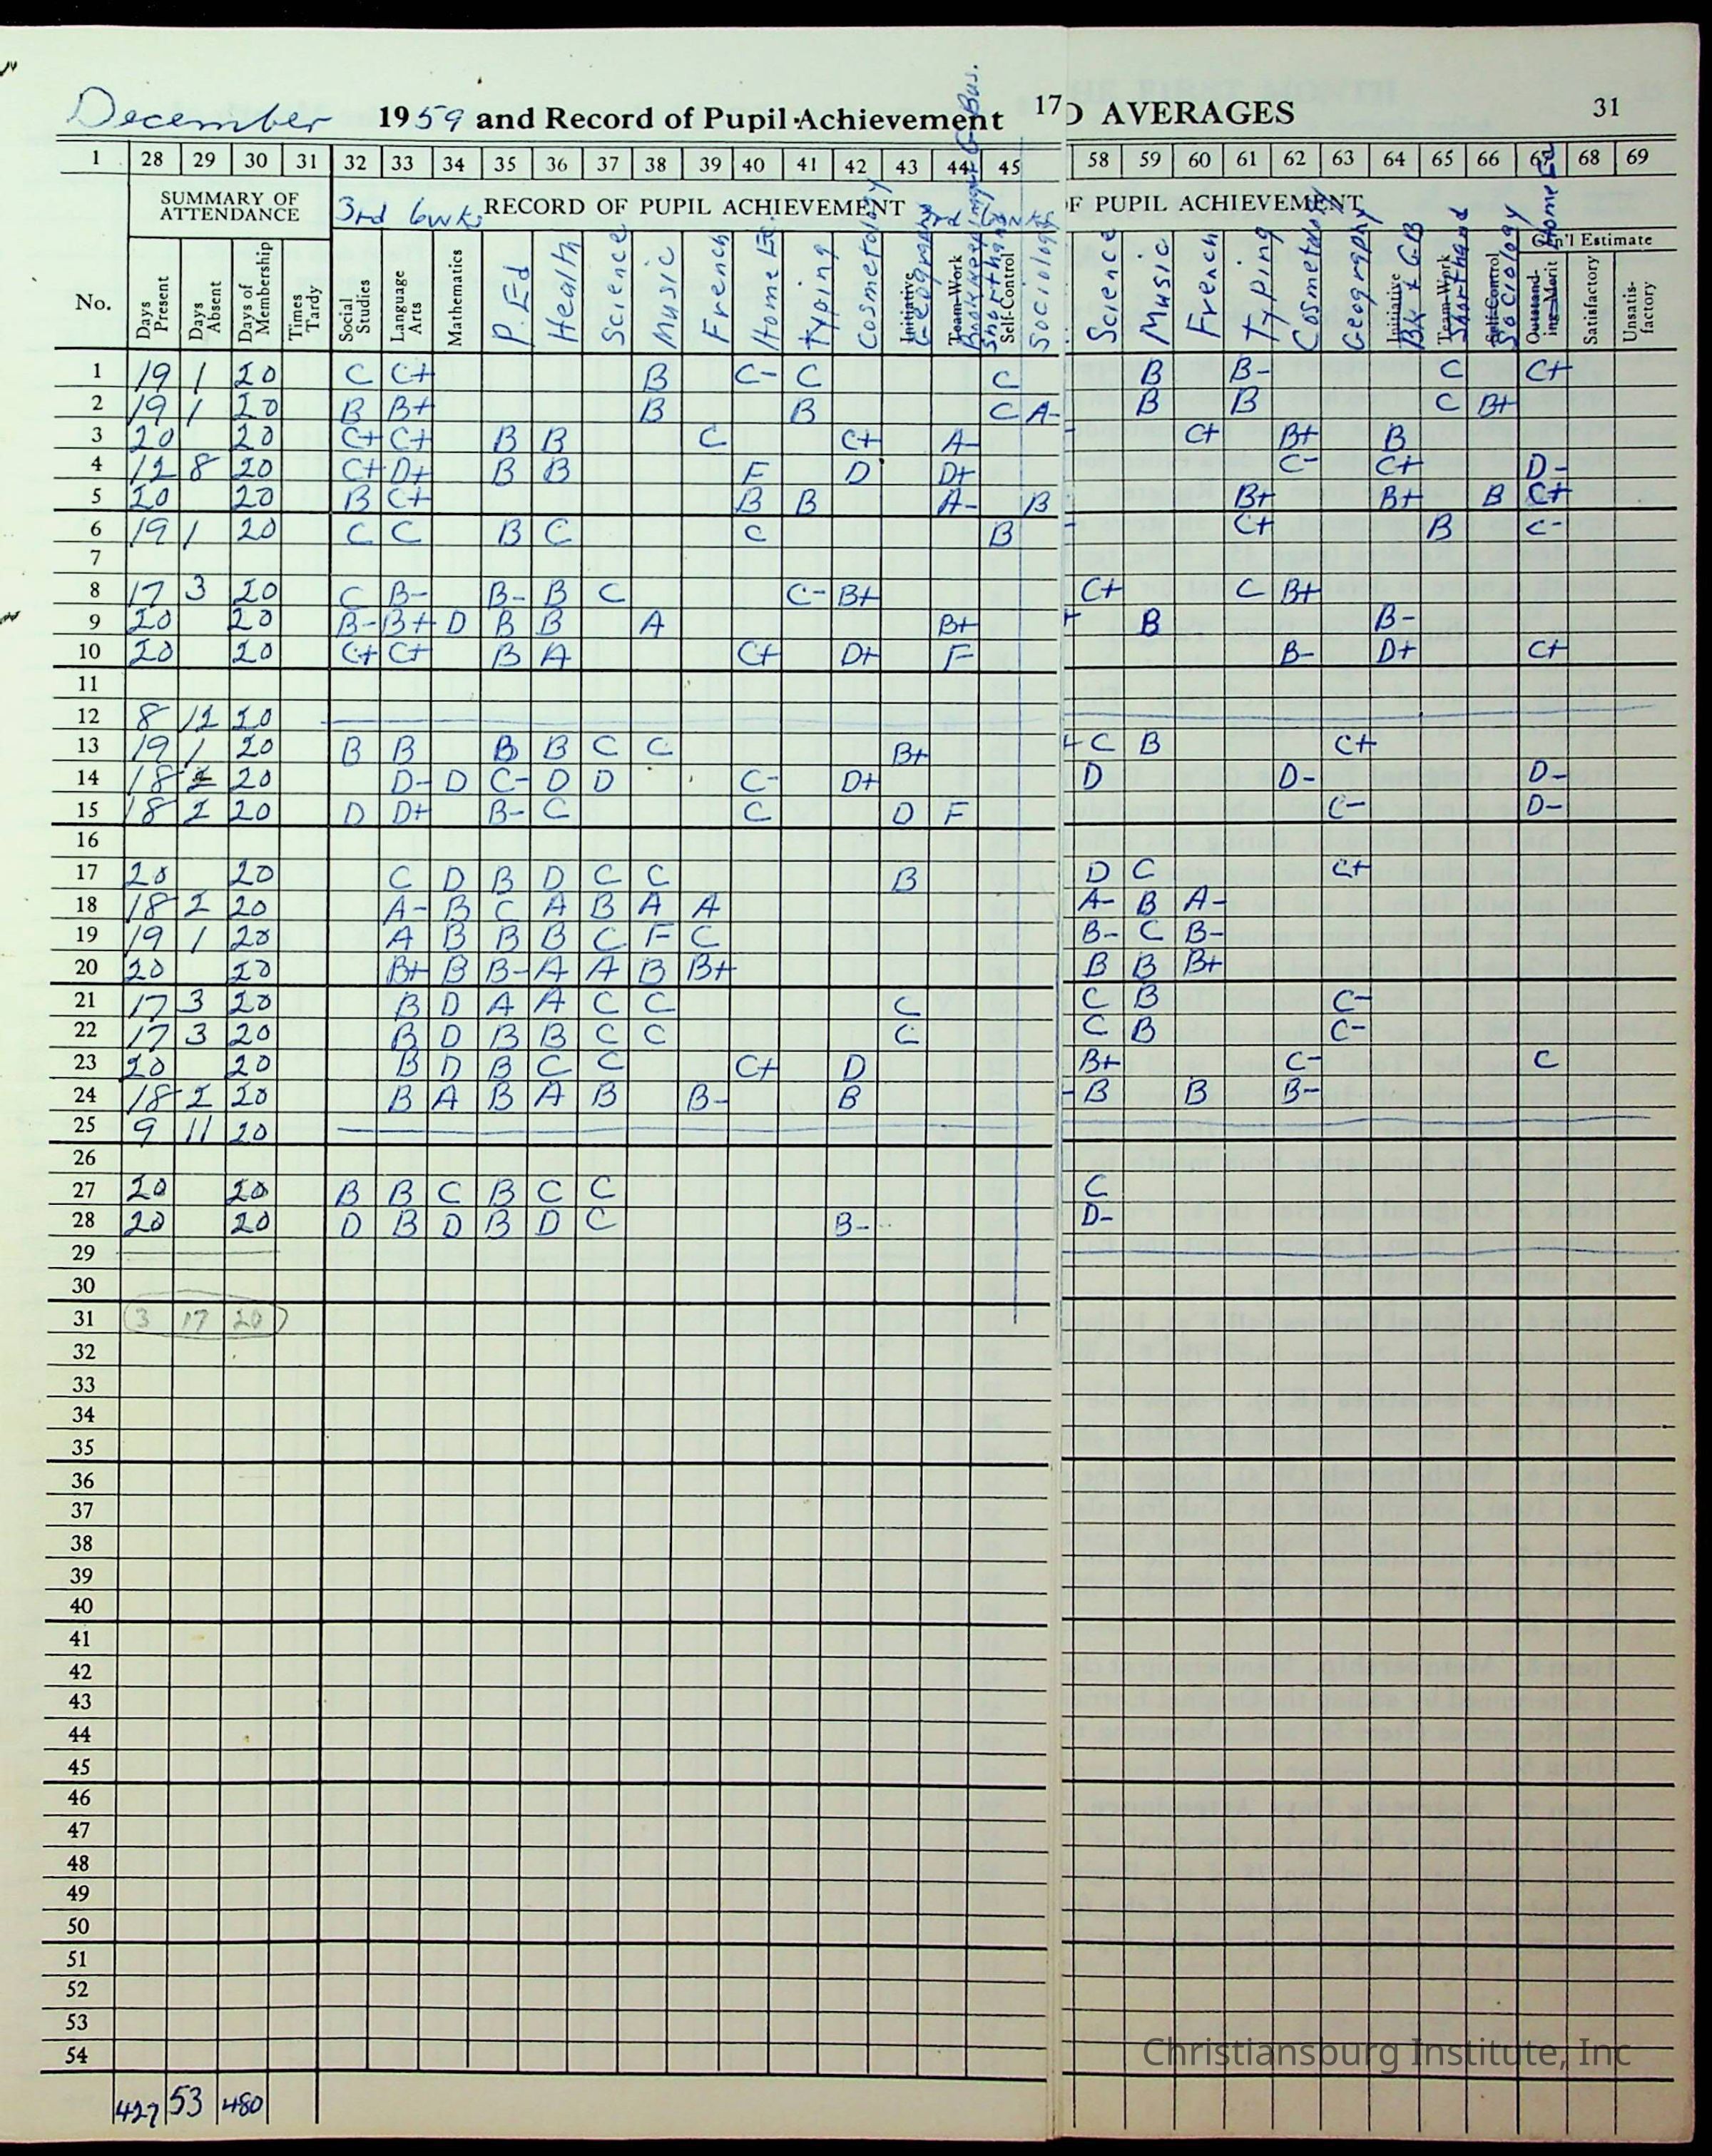 December 1959 and Record of Pupil Achievement 17 D AVERAGES 31
1 28 29 30 31 32 33 34 35 36 37 38 39 40 41 42 43 44 45 58 59 60 61 62 63 64 65 66 67 68 69
SUMMARY OF ATTENDANCE 3rd 6wks RECORD OF PUPIL ACHIEVEMENT 3rd 6wks OF PUPIL ACHIEVEMENT
Gen'l Estimate
No. Days Present Days Absent Days of Membership Times Tardy Social Studies Language Arts Mathematics P. Ed Health Science Music French Home Ec. Typing Cosmetology Initiative Geography Team-Work Bookkeeping + G. Bus. Shorthand Self-Control Sociology Science Music French Typing Cosmetology Geography Initiative Bk + GB Team-Work Shorthand Self-Control Sociology Outstanding Merit Home Ec Satisfactory Unsatisfactory
1 19 1 20 C C+ B C- C C B B- C C+
2 19 1 20 B B+ B B C A- B B C B+
3 20 20 C+ C+ B B C C+ A- C+ B+ B
4 12 8 20 C+ D+ B B F D D+ C- C+ D-
5 20 20 B C+ B B A- B B+ B+ B C+
6 19 1 20 C C B C C B - C+ B C-
7
8 17 3 20 C B- B- B C C- B+ C+ C B+
9 20 20 B- B+ D B B A B+ + B B-
10 20 20 C+ C+ B A C+ D+ F B- D+ C+
11
12 8 12 20
13 19 1 20 B B B B C C B+ C B C+
14 18 2 20 D- D C- D D C- D+ D D- D-
15 18 2 20 D D+ B- C C D F C- D-
16
17 20 20 C D B D C C B D C C+
18 18 2 20 A- B C A B A A A- B A-
19 19 1 20 A B B B C F C B- C B-
20 20 20 B+ B B- A A B B+ B B B+
21 17 3 20 B D A A C C C C B C-
22 17 3 20 B D B B C C C C B C-
23 20 20 B D B C C C+ D B+ C- C
24 18 2 20 B A B A B B- B - B B B-
25 9 11 20
26
27 20 20 B B C B C C C
28 20 20 D B D B D C B- D-
29
30
31 3 17 20
32
33
34
35
36
37
38
39
40
41
42
43
44
45
46
47
48
49
50
51
52
53
54
427 53 480
Christiansburg Institute, Inc